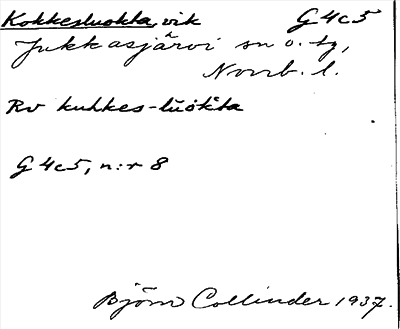 Kokkesluokta, vik G4c5
Jukkasjärvi sn o. tg,
Norrb. l.
Rv kuhkes-luokta
G4c5, n:r 8
Björn Collinder 1937.